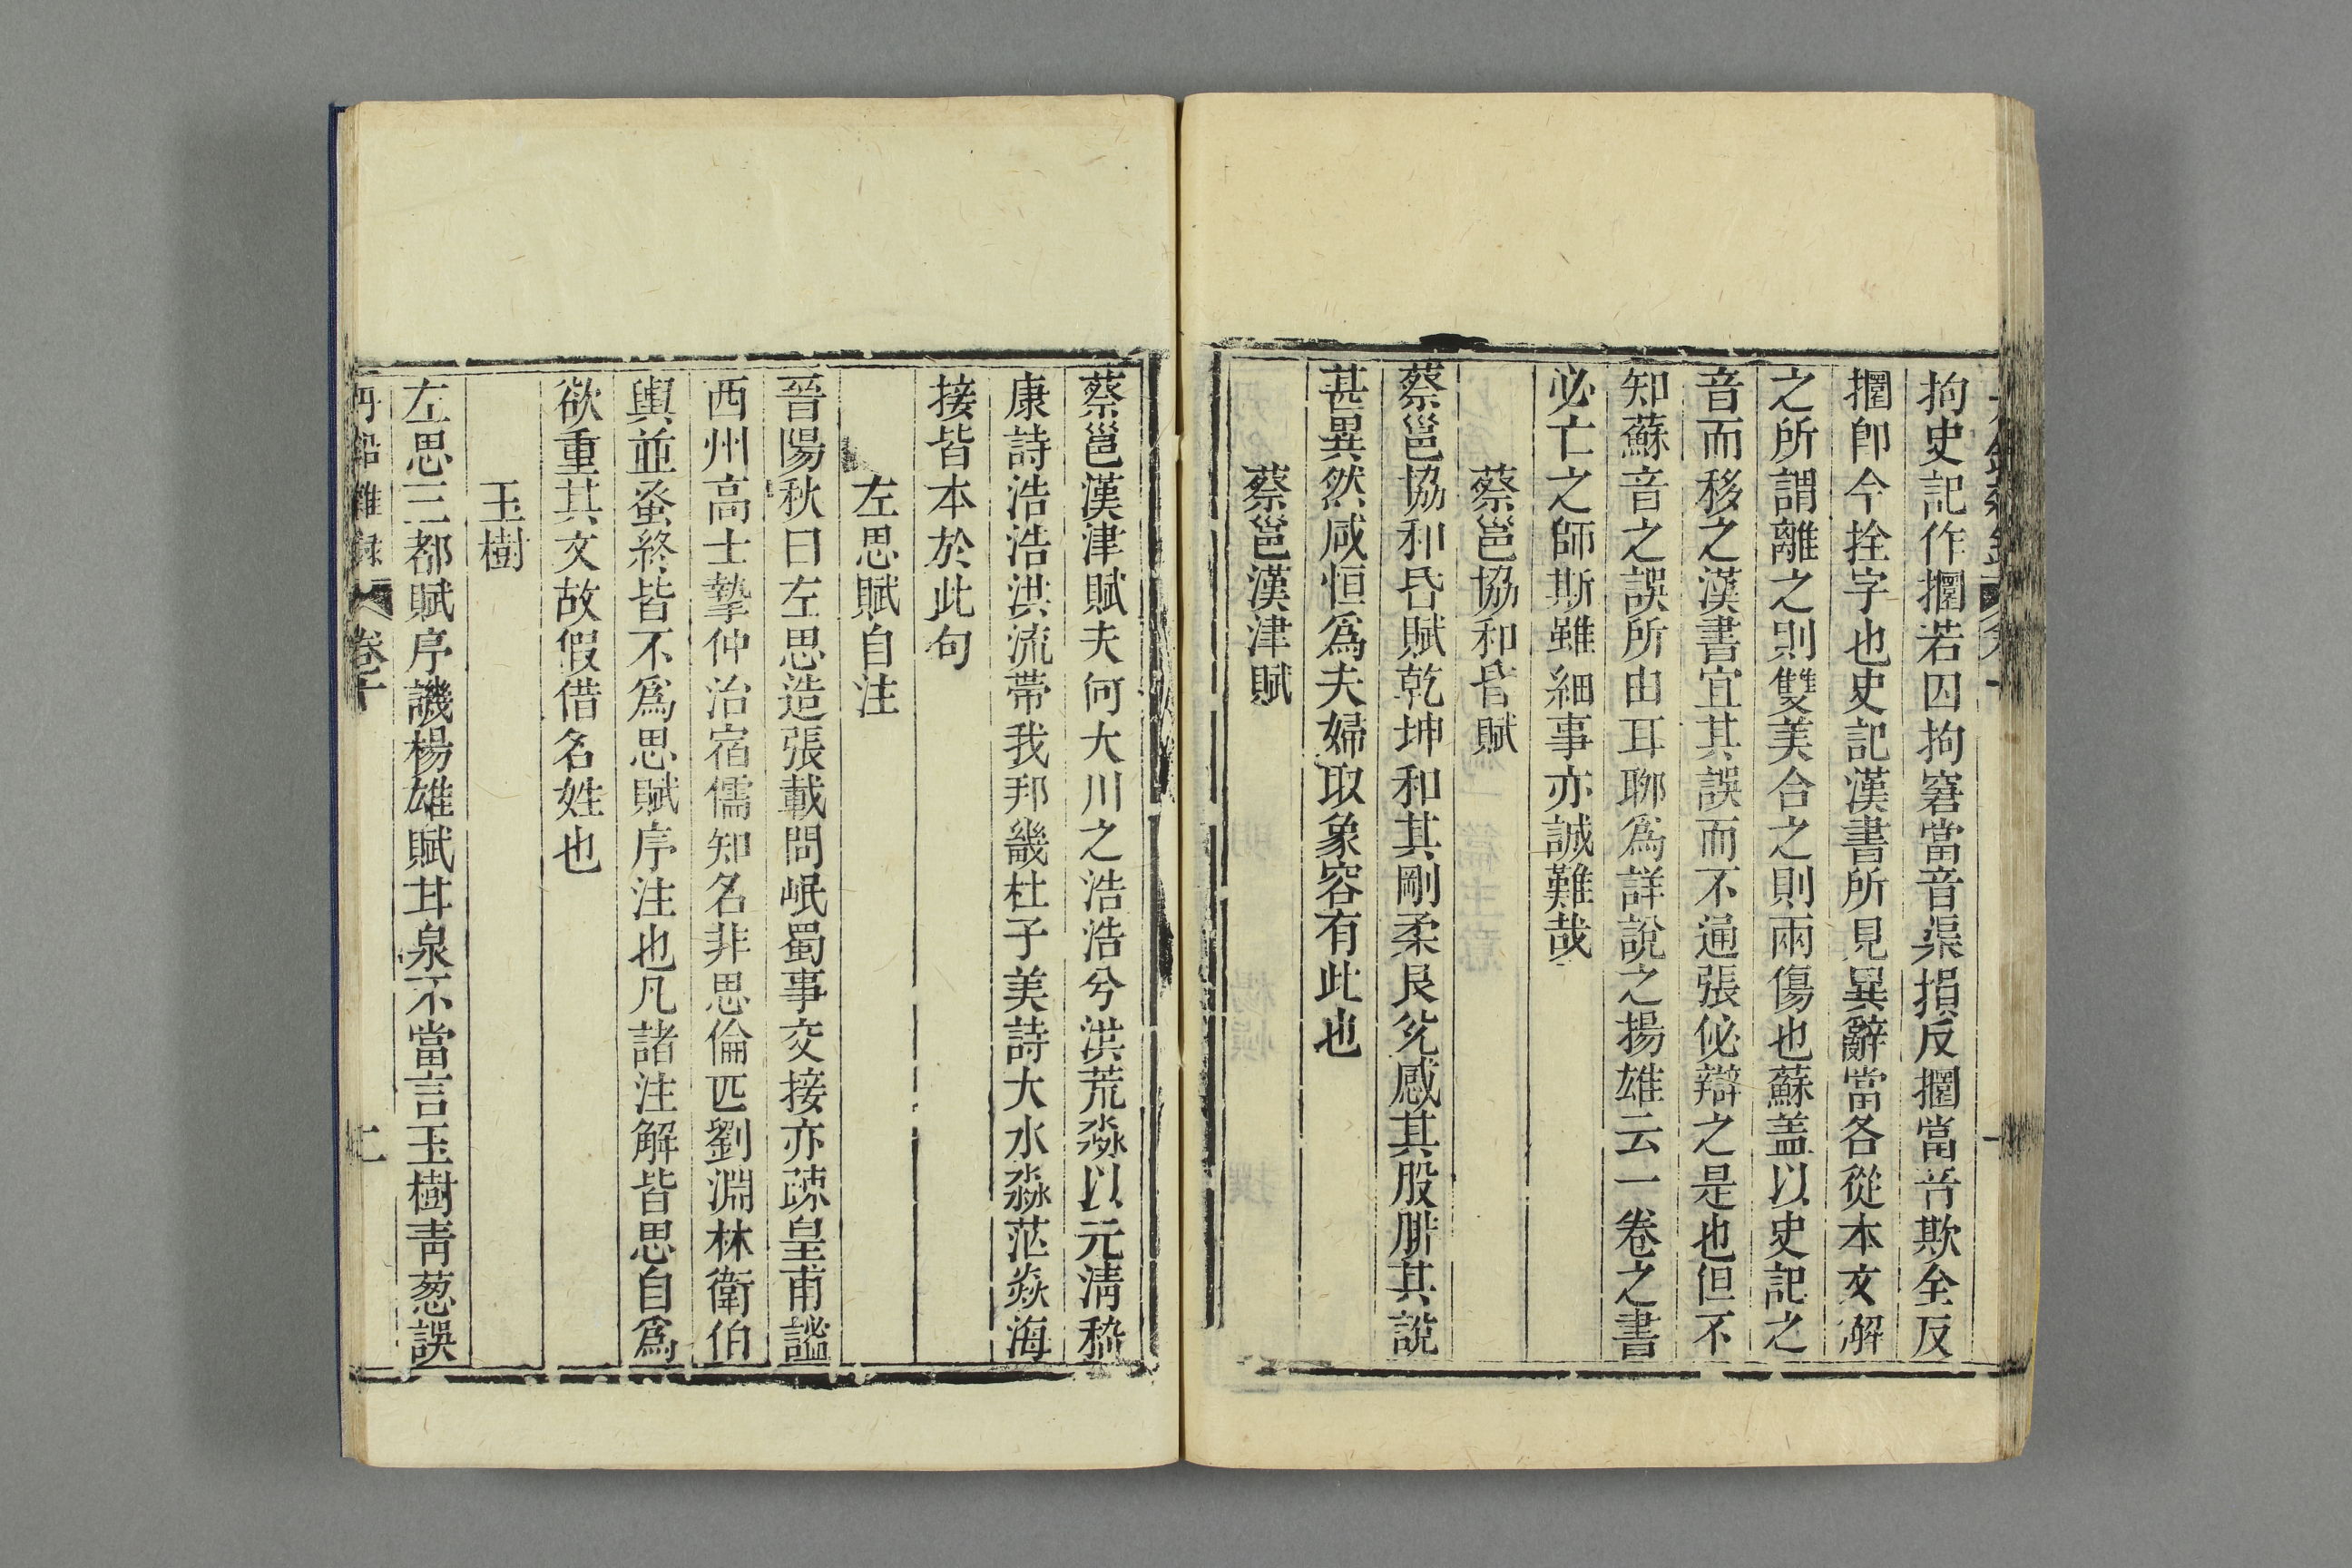 拘史記作攌若囚拘窘當音渠損反攌當音欺全反
攌卽今拴字也史記漢書所見異辭當各從本文解
之所謂離之則雙美合之則兩傷也蘇盖以史記之
音而移之漢書宜其誤而不通張佖辯之是也但不
知蘇音之誤所由耳聊爲詳說之揚雄云一卷之書
必亡之師斯雖細事亦誠難哉
蔡邕協和昏賦
蔡邕協和昏賦乾坤和其剛柔艮兊感其股腓其說
甚異然咸恒爲夫婦取象容有此也
蔡邕漢津賦
蔡邕漢津賦夫何大川之浩浩兮洪荒淼以元清嵇
康詩浩浩洪流帶我邦畿杜子美詩大水淼茫炎海
接皆本於此句
左思賦自注
晉陽秋曰左思造張載問岷蜀事交接亦疎皇甫謐
西州高士摯仲治宿儒知名非思倫匹劉淵林衛伯
輿並蚤終皆不爲思賦序注也凡諸注解皆思自爲
欲重其文故假借名姓也
玉樹
左思三都賦序譏楊雄賦甘泉不當言玉樹靑葱誤
丹鉛雜録 卷十 二